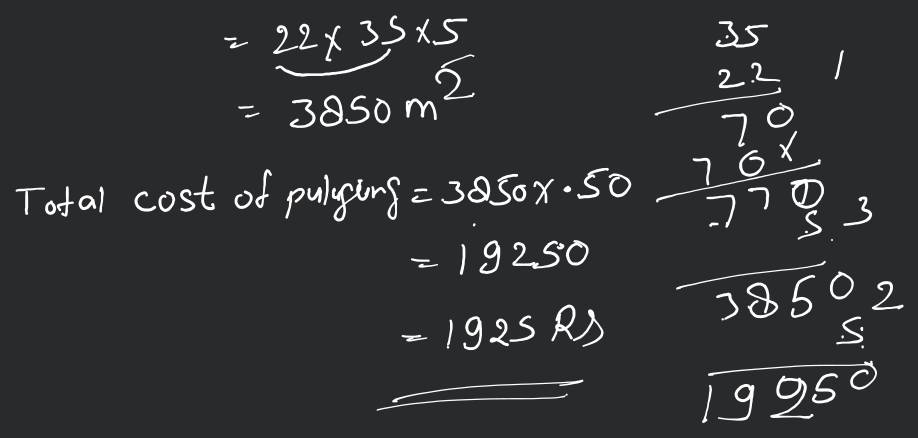 = 22 x 35 x 5
= 3850 m²
Total cost of pulying = 3850 x .50
= 19250
= 1925 Rs
35
22 1
70
70x
770
5 3
3850 2
5
19250